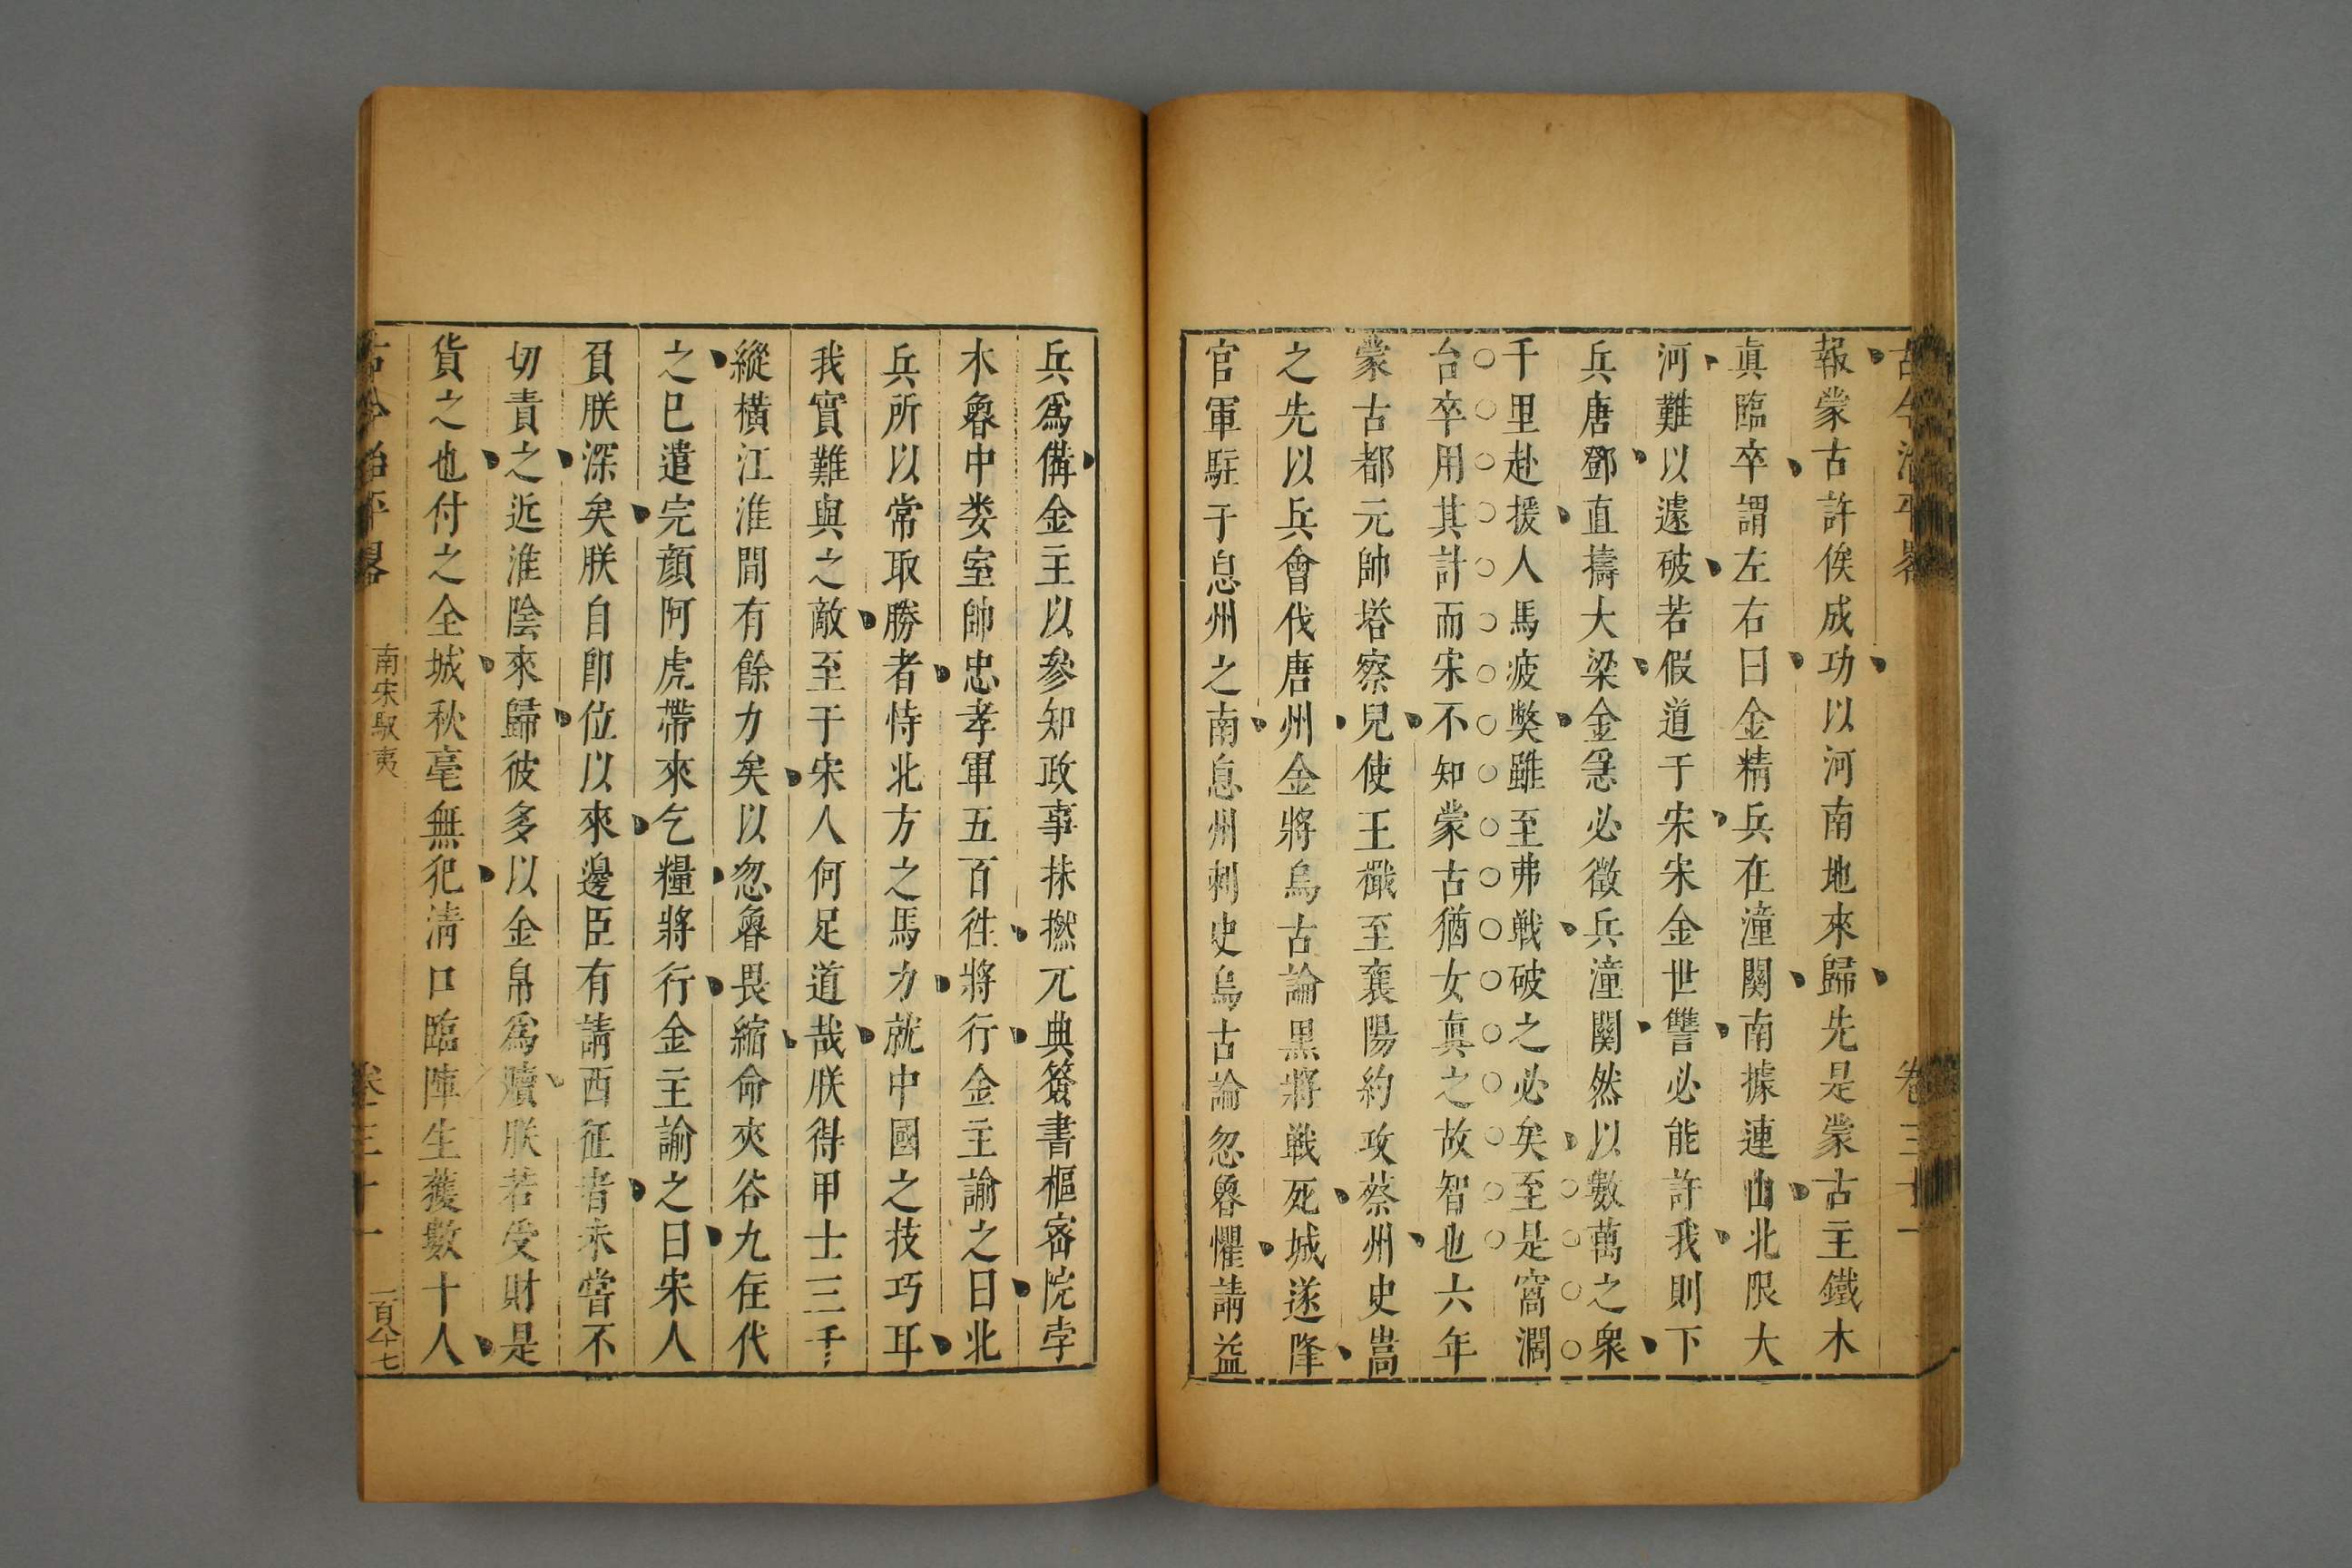 古今治平畧 卷三十一
報蒙古許俟成功以河南地來歸先是蒙古主鐵木
真臨卒謂左右曰金精兵在潼關南據連山北限大
河難以遽破若假道于宋宋金世讐必能許我則下
兵唐鄧直擣大梁金急必徵兵潼關然以數萬之衆
千里赴援人馬疲弊雖至弗戰破之必矣至是窩濶
台卒用其計而宋不知蒙古猶女真之故智也六年
蒙古都元帥塔察兒使王檝至襄陽約攻蔡州史嵩
之先以兵會伐唐州金將烏古論黑將戰死城遂降
官軍駐于息州之南息州刺史烏古論忽魯懼請益
兵爲備金主以參知政事抹撚兀典簽書樞密院孛
木魯中娄室帥忠孝軍五百徃將行金主諭之曰北
兵所以常取勝者恃北方之馬力就中國之技巧耳
我實難與之敵至于宋人何足道哉朕得甲士三千
縱橫江淮間有餘力矣以忽魯畏縮命夾谷九住代
之已遣完顔阿虎帶來乞糧將行金主諭之曰宋人
負朕深矣朕自卽位以來邊臣有請西征者未嘗不
切責之近淮陰來歸彼多以金帛爲贖朕若受財是
貨之也付之全城秋毫無犯淸口臨陣生獲數十人
古今治平畧 南宋馭夷 卷三十一 一百八十七